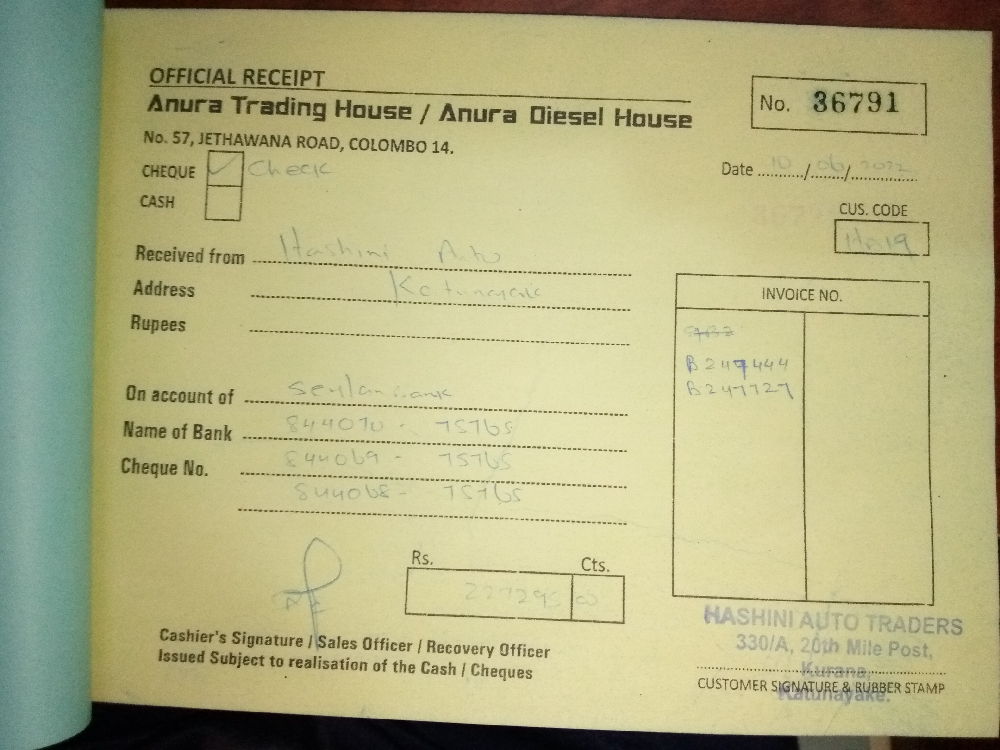 OFFICIAL RECEIPT
Anura Trading House / Anura Diesel House
No. 36791
No. 57, JETHAWANA ROAD, COLOMBO 14.
CHEQUE ✓ Check
Date 10/06/2022
CASH
CUS. CODE
Ha19
Received from Hashini Auto
Address Katunayak
INVOICE NO.
Rupees
B247444
B247727
On account of Seylan Bank
Name of Bank 844070 - 75765
Cheque No. 844069 - 75765
844068 - 75765
Rs. Cts.
227295 00
HASHINI AUTO TRADERS
330/A, 20th Mile Post,
Kurana,
Katunayake.
Cashier's Signature / Sales Officer / Recovery Officer
Issued Subject to realisation of the Cash / Cheques
CUSTOMER SIGNATURE & RUBBER STAMP